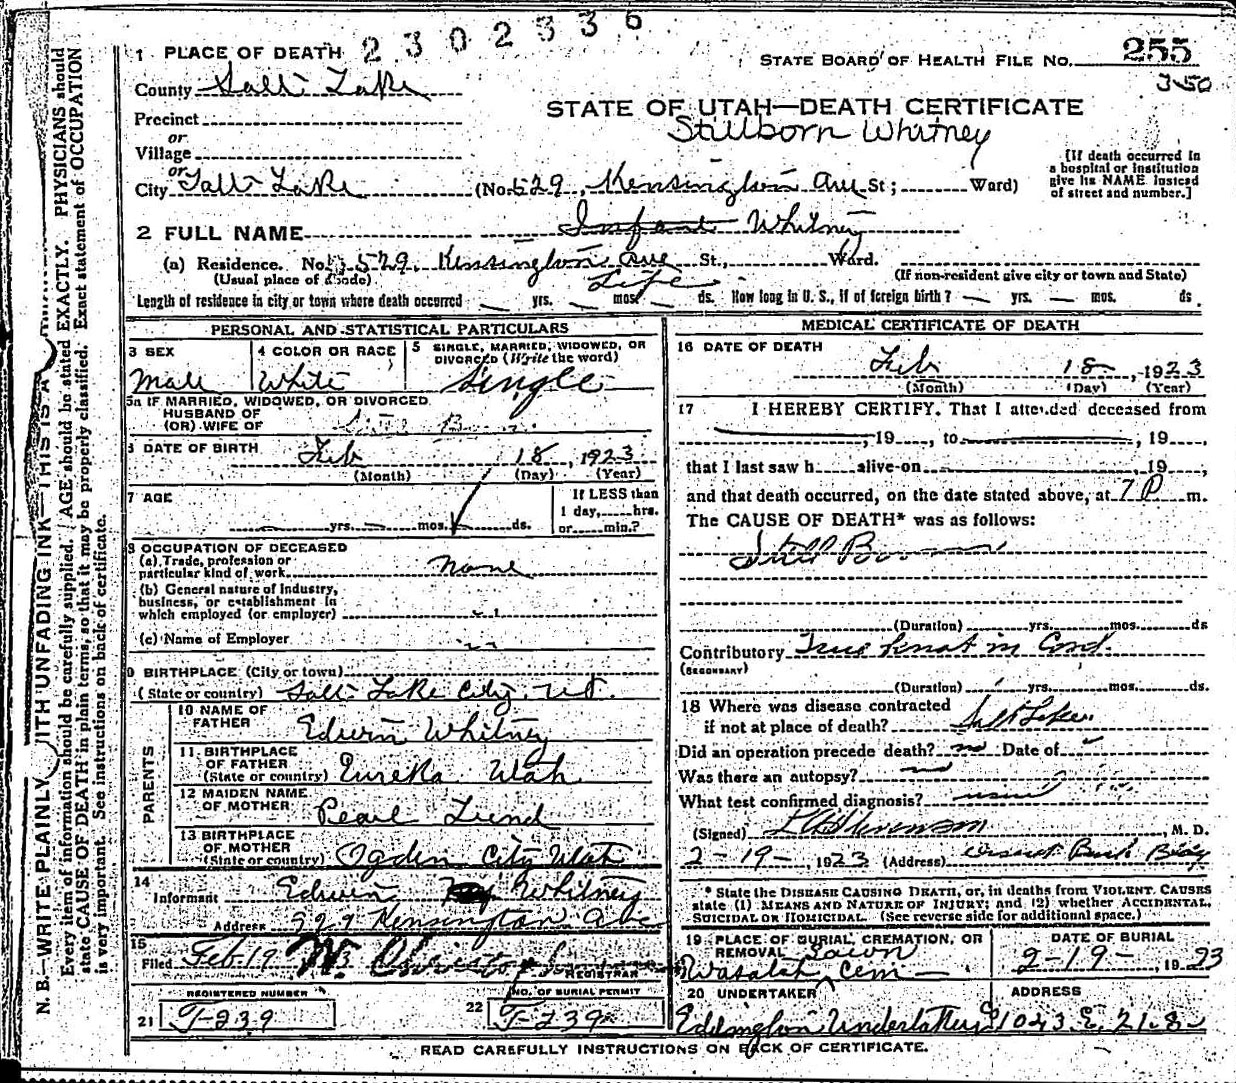 2302336
1 PLACE OF DEATH
STATE BOARD OF HEALTH FILE No. 255
3-50
County Salt Lake
STATE OF UTAH—DEATH CERTIFICATE
Stillborn Whitney
Precinct
or
Village
or
City Salt Lake (No. 529, Kensington Ave St; Ward)
[If death occurred in a hospital or institution give its NAME instead of street and number.]
2 FULL NAME Infant Whitney
(a) Residence. No. 529. Kensington Ave St., Ward.
(Usual place of abode) (If non-resident give city or town and State)
Life
Length of residence in city or town where death occurred yrs. mos. ds. How long in U. S., if of foreign birth? yrs. mos. ds.
PERSONAL AND STATISTICAL PARTICULARS
3 SEX
Male
4 COLOR OR RACE
White
5 SINGLE, MARRIED, WIDOWED, OR DIVORCED (Write the word)
Single
5a IF MARRIED, WIDOWED, OR DIVORCED
HUSBAND OF
(OR) WIFE OF
6 DATE OF BIRTH Feb 18, 1923
(Month) (Day) (Year)
7 AGE
yrs. mos. ds.
If LESS than
1 day, hrs.
or min.?
8 OCCUPATION OF DECEASED
(a) Trade, profession or
particular kind of work None
(b) General nature of industry,
business, or establishment in
which employed (or employer)
(c) Name of Employer
9 BIRTHPLACE (City or town)
(State or country) Salt Lake City, Ut.
PARENTS
10 NAME OF
FATHER Edwin Whitney
11 BIRTHPLACE
OF FATHER
(State or country) Eureka Utah
12 MAIDEN NAME
OF MOTHER Pearl Lund
13 BIRTHPLACE
OF MOTHER
(State or country) Ogden City Utah
14
Informant Edwin Whitney
Address 929 Kensington Ave
15
Filed Feb 19
REGISTRAR
REGISTERED NUMBER
21 T-239
NO. OF BURIAL PERMIT
22 T-239
MEDICAL CERTIFICATE OF DEATH
16 DATE OF DEATH
Feb 18, 1923
(Month) (Day) (Year)
17 I HEREBY CERTIFY, That I attended deceased from
, 19 , to , 19 ,
that I last saw h alive on , 19 ,
and that death occurred, on the date stated above, at 7 P m.
The CAUSE OF DEATH* was as follows:
Still Born
(Duration) yrs. mos. ds
Contributory True knot in Cord.
(SECONDARY)
(Duration) yrs. mos. ds.
18 Where was disease contracted
if not at place of death? Salt Lake
Did an operation precede death? no Date of
Was there an autopsy? no
What test confirmed diagnosis? usual
(Signed) Stevenson, M. D.
2-19-, 1923 (Address) Bank Bldg
* State the DISEASE CAUSING DEATH, or, in deaths from VIOLENT CAUSES state (1) MEANS AND NATURE OF INJURY; and (2) whether ACCIDENTAL, SUICIDAL OR HOMICIDAL. (See reverse side for additional space.)
19 PLACE OF BURIAL, CREMATION, OR
REMOVAL Lawn
Wasatch Cem
DATE OF BURIAL
2-19-, 1923
20 UNDERTAKER
Eddington Undertaking
ADDRESS
1023 E. 21. S
READ CAREFULLY INSTRUCTIONS ON BACK OF CERTIFICATE.
N. B.—WRITE PLAINLY WITH UNFADING INK—THIS IS A
Every item of information should be carefully supplied. AGE should be stated EXACTLY. PHYSICIANS should
state CAUSE OF DEATH in plain terms, so that it may be properly classified. Exact statement of OCCUPATION
is very important. See instructions on back of certificate.